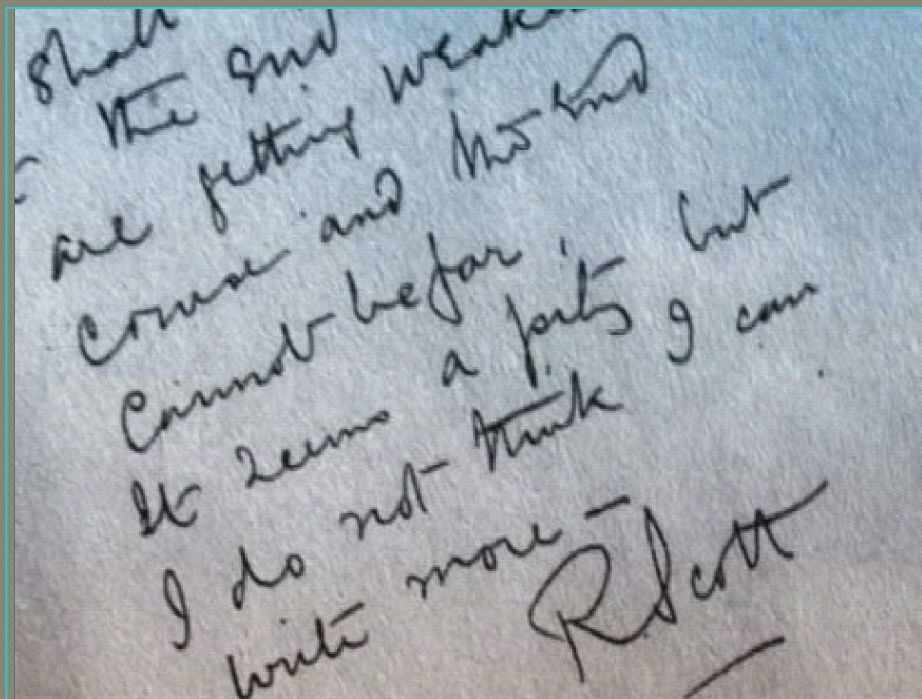 shall
the end
are getting weaker
course and the end
cannot be far.
It seems a pity but
I do not think I can
write more –
R. Scott